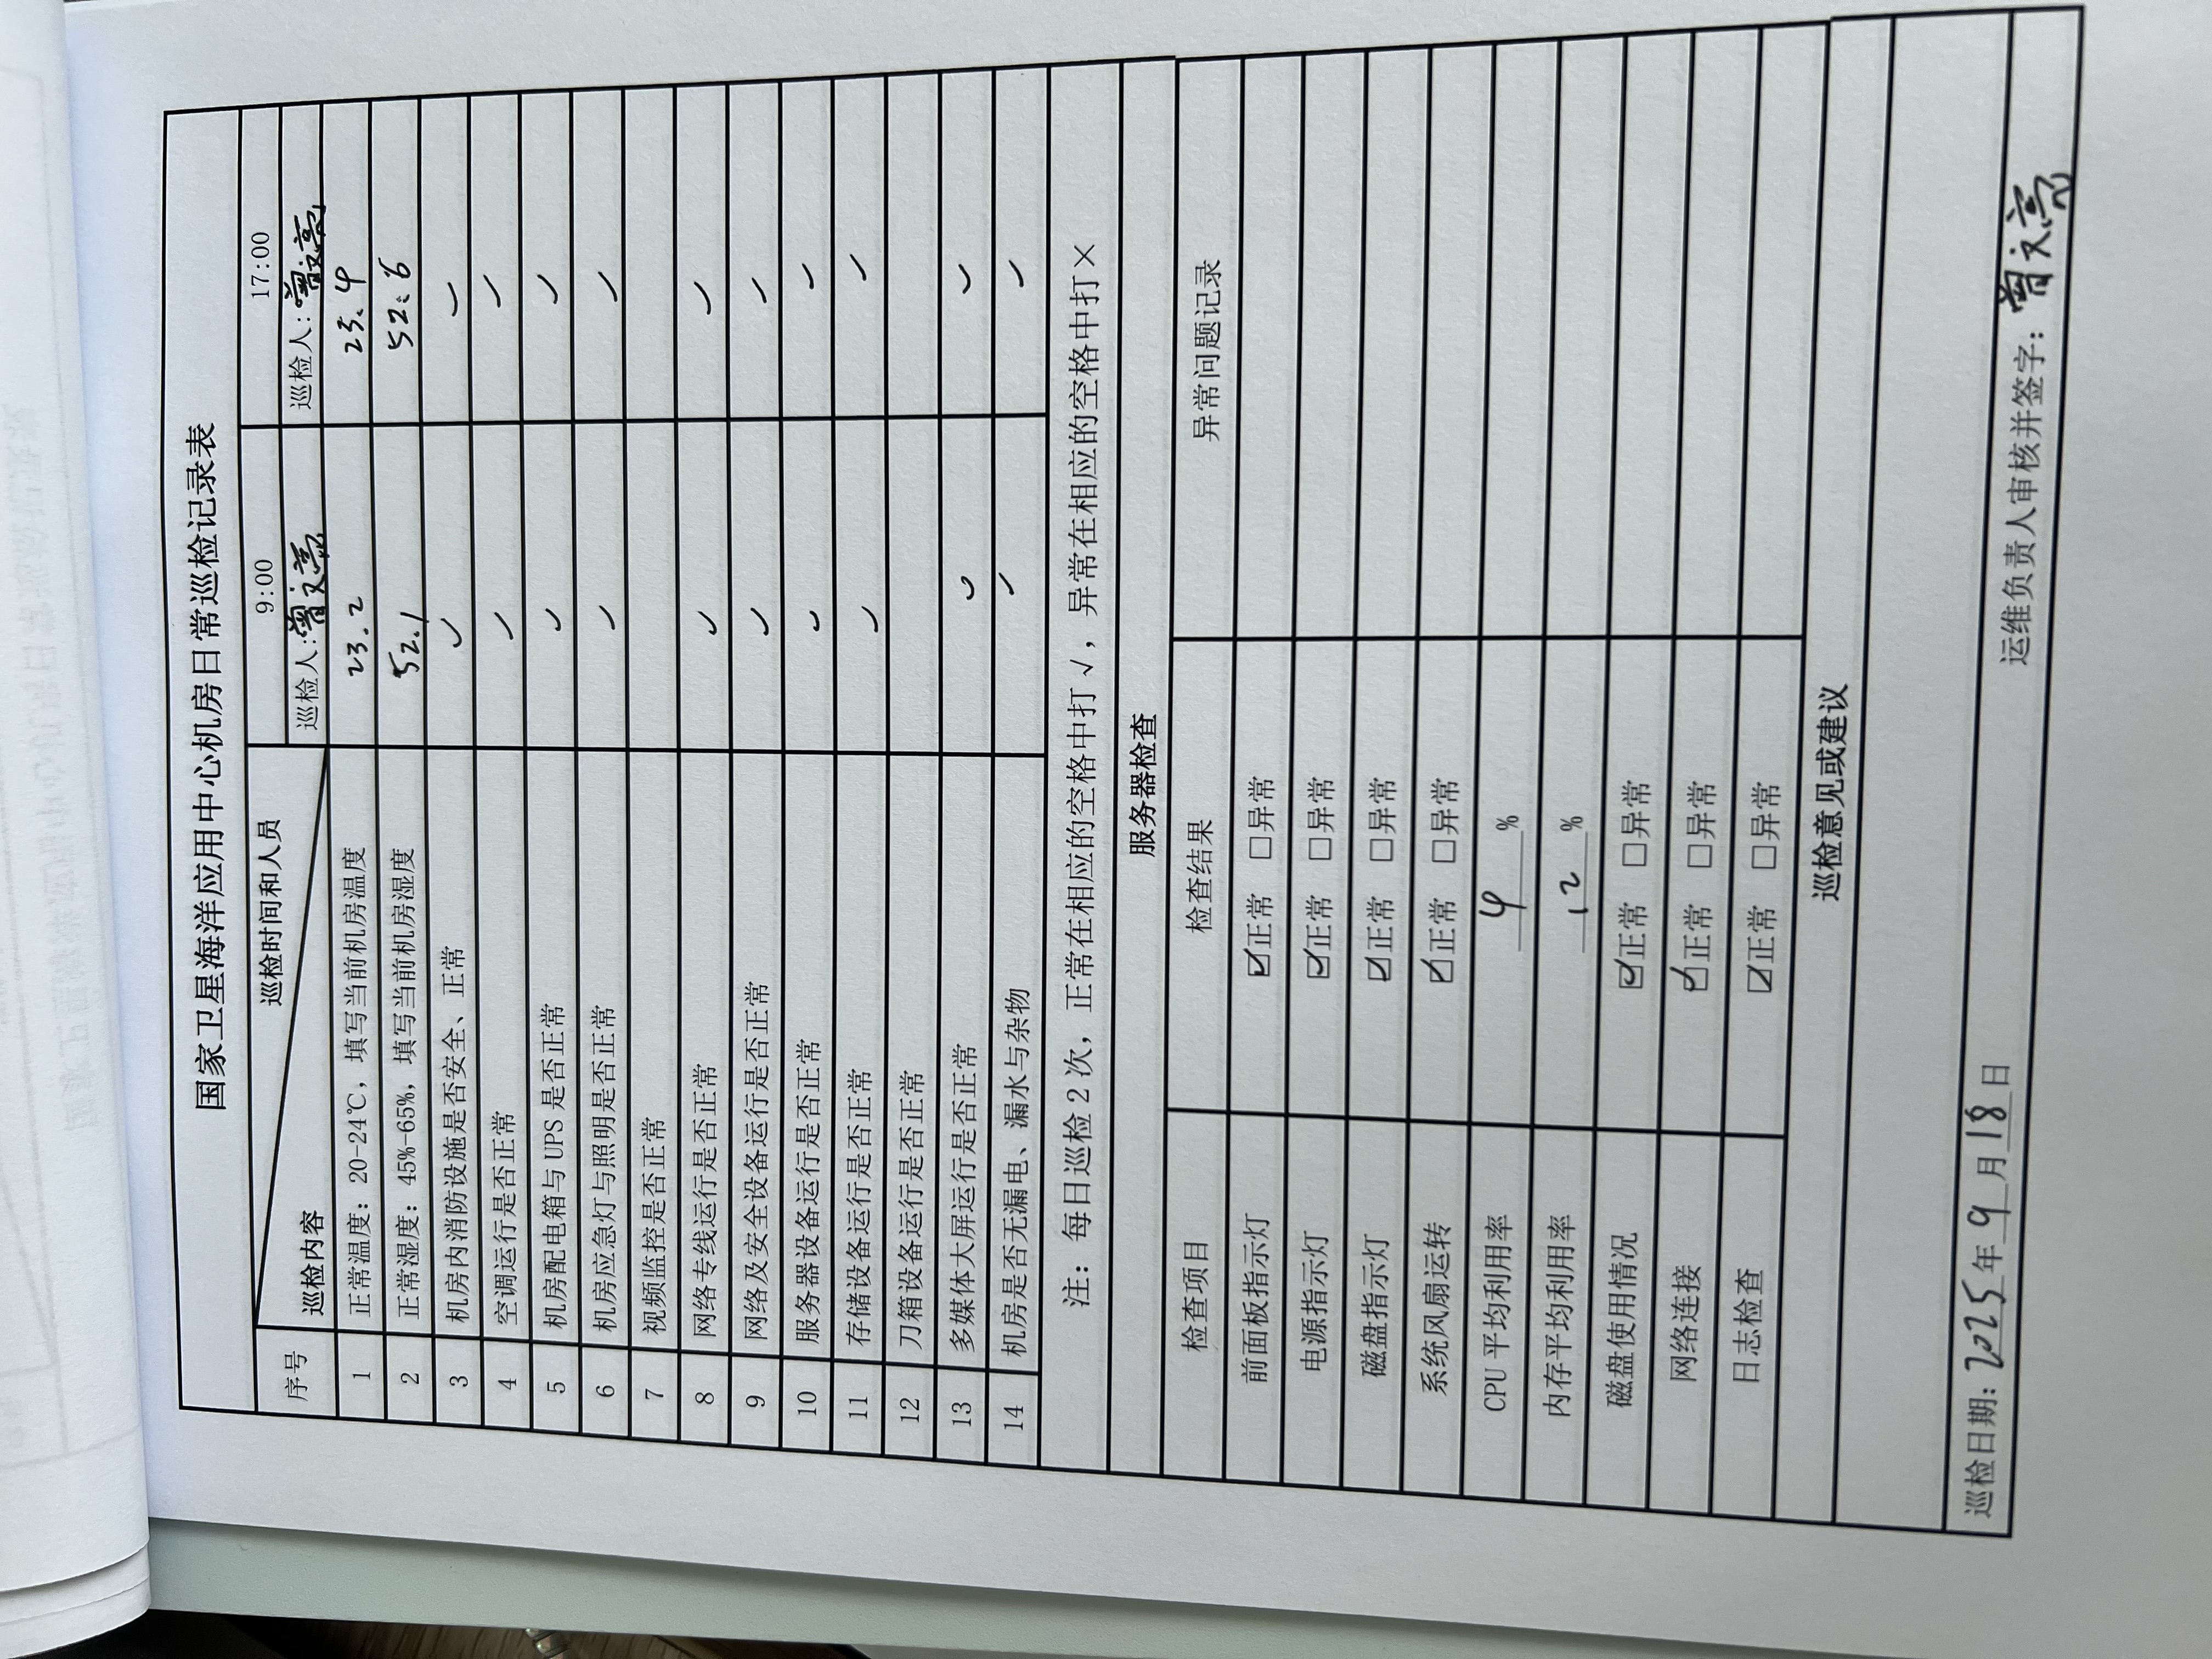 国家卫星海洋应用中心机房日常巡检记录表
序号 巡检内容 巡检时间和人员 9:00 17:00
巡检人:曾文亮 巡检人:曾文亮
1 正常温度：20-24℃，填写当前机房温度 23.2 23.4
2 正常湿度：45%-65%，填写当前机房湿度 52.1 52.6
3 机房内消防设施是否安全、正常 ✓ ✓
4 空调运行是否正常 ✓ ✓
5 机房配电箱与 UPS 是否正常 ✓ ✓
6 机房应急灯与照明是否正常 ✓ ✓
7 视频监控是否正常
8 网络专线运行是否正常 ✓ ✓
9 网络及安全设备运行是否正常 ✓ ✓
10 服务器设备运行是否正常 ✓ ✓
11 存储设备运行是否正常 ✓ ✓
12 刀箱设备运行是否正常
13 多媒体大屏运行是否正常 ✓ ✓
14 机房是否无漏电、漏水与杂物 ✓ ✓
注：每日巡检 2 次，正常在相应的空格中打 √，异常在相应的空格中打×
服务器检查
检查项目 检查结果 异常问题记录
前面板指示灯 ☑正常 □异常
电源指示灯 ☑正常 □异常
磁盘指示灯 ☑正常 □异常
系统风扇运转 ☑正常 □异常
CPU 平均利用率 4 %
内存平均利用率 12 %
磁盘使用情况 ☑正常 □异常
网络连接 ☑正常 □异常
日志检查 ☑正常 □异常
巡检意见或建议
巡检日期：2025年9月18日 运维负责人审核并签字：曾文亮